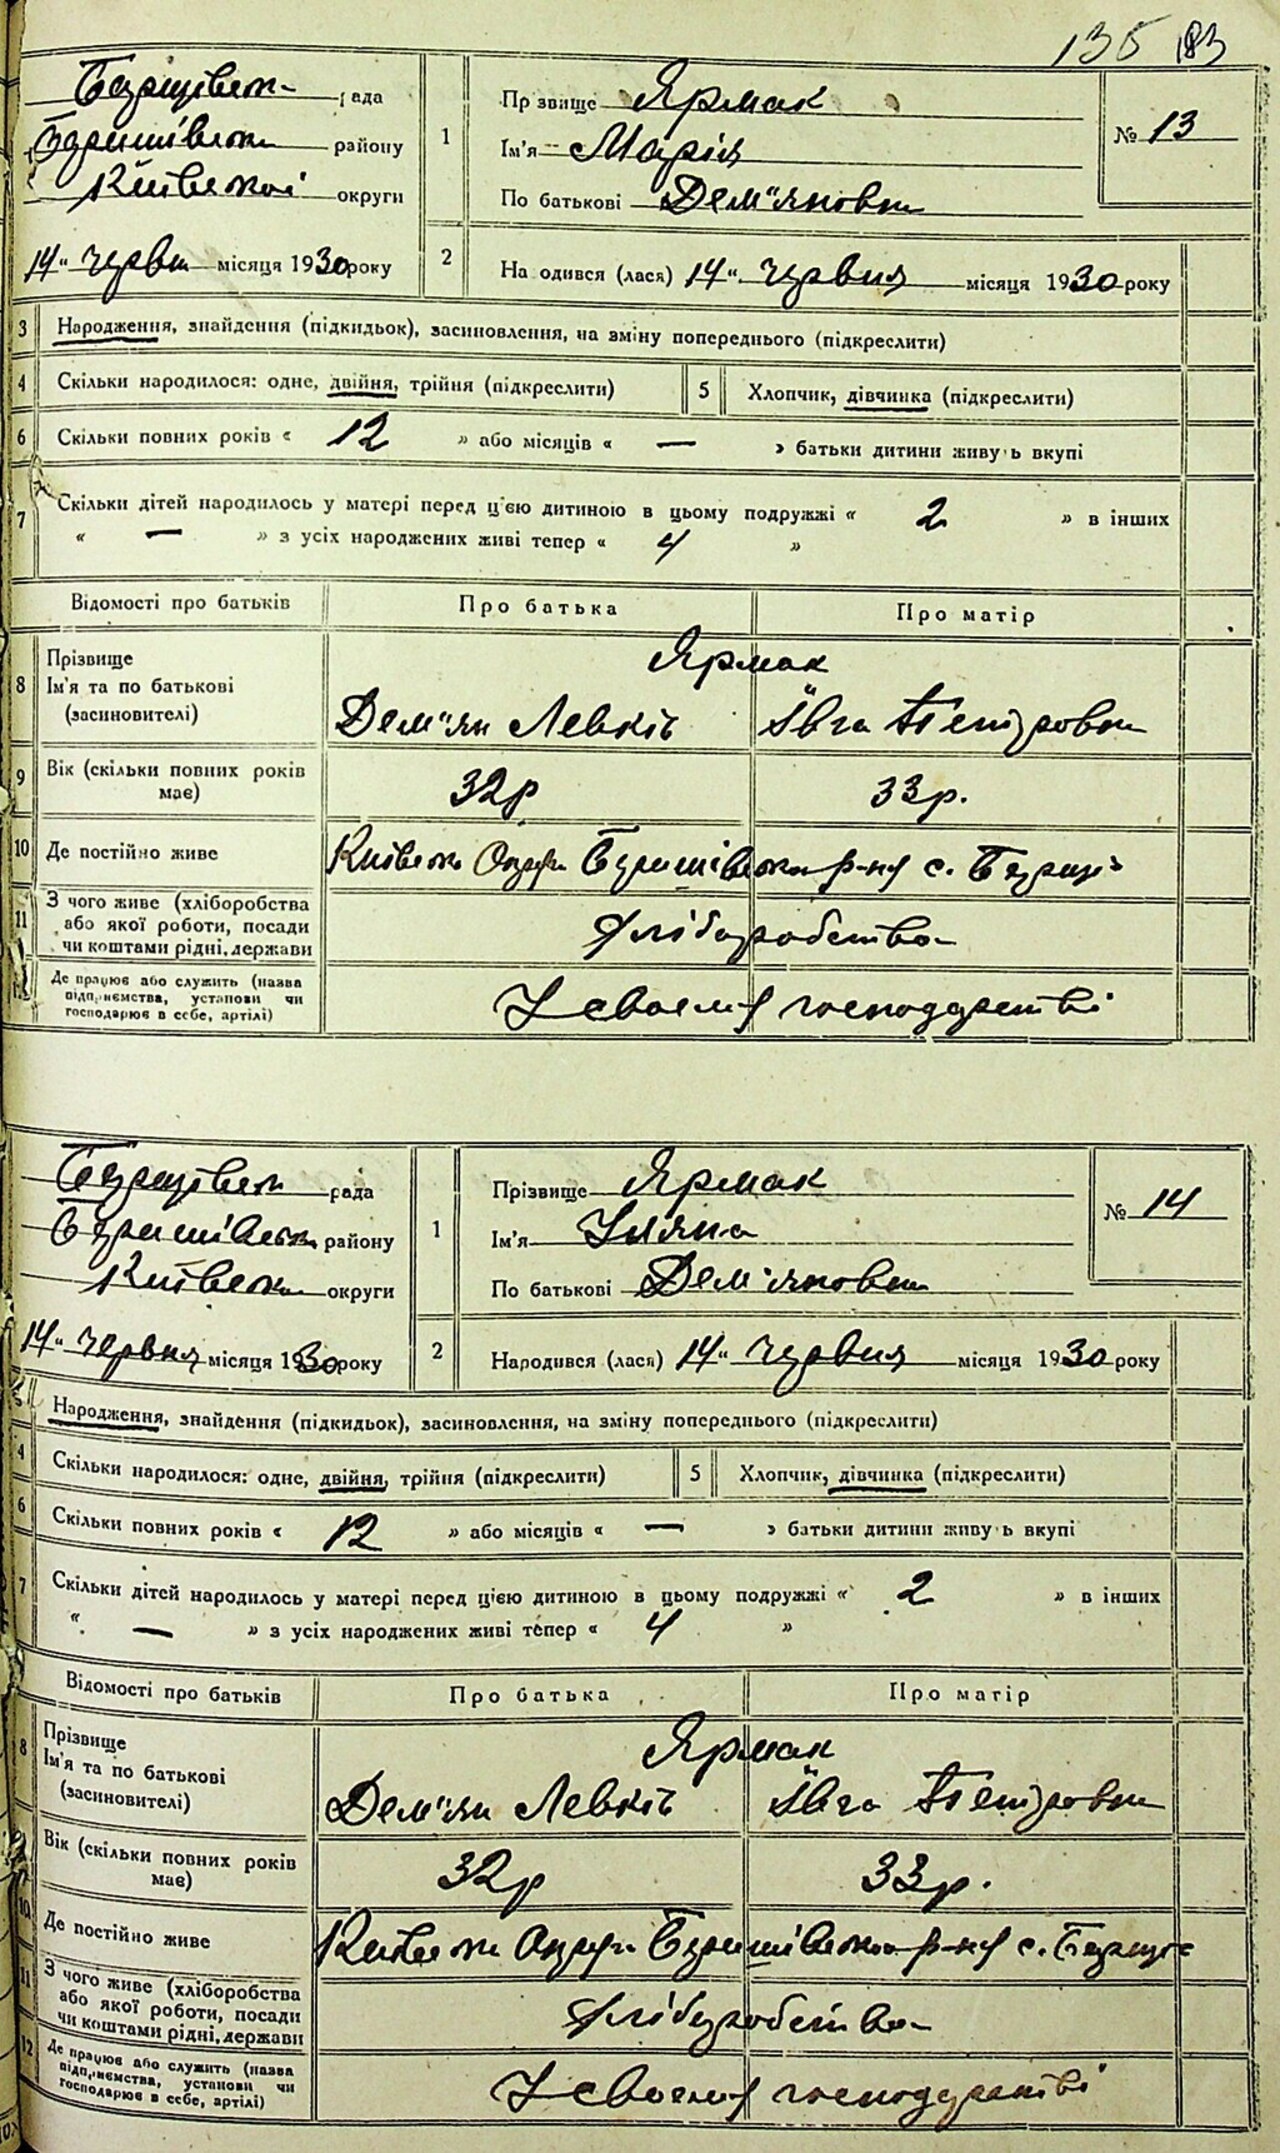 135 183
рада
району
Київської округи
14" червня місяця 1930 року
1 Прізвище Ярмак
Ім'я Марія
По батькові Дем"яновна
№ 13
2 На одився (лася) 14" червня місяця 1930 року
3 Народження, знайдення (підкидьок), засиновлення, на зміну попереднього (підкреслити)
4 Скільки народилося: одне, двійня, трійня (підкреслити) 5 Хлопчик, дівчинка (підкреслити)
6 Скільки повних років « 12 » або місяців « — » батьки дитини живу ь вкупі
7 Скільки дітей народилось у матері перед ц'єю дитиною в цьому подружжі « 2 » в інших
« — » з усіх народжених живі тепер « 4 »
Відомості про батьків Про батька Про матір
8 Прізвище
Ім'я та по батькові
(засиновителі)
Ярмак
Дем"ян Левків Ївга Петровна
9 Вік (скільки повних років
має)
32р 33р.
10 Де постійно живе
11 З чого живе (хліборобства
або якої роботи, посади
чи коштами рідні, держави
Хліборобство
Де працює або служить (назва
підприємства, установи чи
господарює в себе, артілі)
У своєму господарстві
рада
району
округи
14" червня місяця 1930 року
1 Прізвище Ярмак
Ім'я Уляна
По батькові Дем'яновна
№ 14
2 Народився (лася) 14" червня місяця 1930 року
Народження, знайдення (підкидьок), засиновлення, на зміну попереднього (підкреслити)
4 Скільки народилося: одне, двійня, трійня (підкреслити) 5 Хлопчик, дівчинка (підкреслити)
6 Скільки повних років « 12 » або місяців « — » батьки дитини живу ь вкупі
7 Скільки дітей народилось у матері перед цією дитиною в цьому подружжі « 2 » в інших
« — » з усіх народжених живі тепер « 4 »
Відомості про батьків Про батька Про матір
8 Прізвище
Ім'я та по батькові
(засиновителі)
Ярмак
Дем"ян Левків Ївга Петровна
Вік (скільки повних років
має)
32р 33р.
10 Де постійно живе
11 З чого живе (хліборобства
або якої роботи, посади
чи коштами рідні, держави
Хліборобство
12 Де працює або служить (назва
підприємства, установи чи
господарює в себе, артілі)
У своєму господарстві